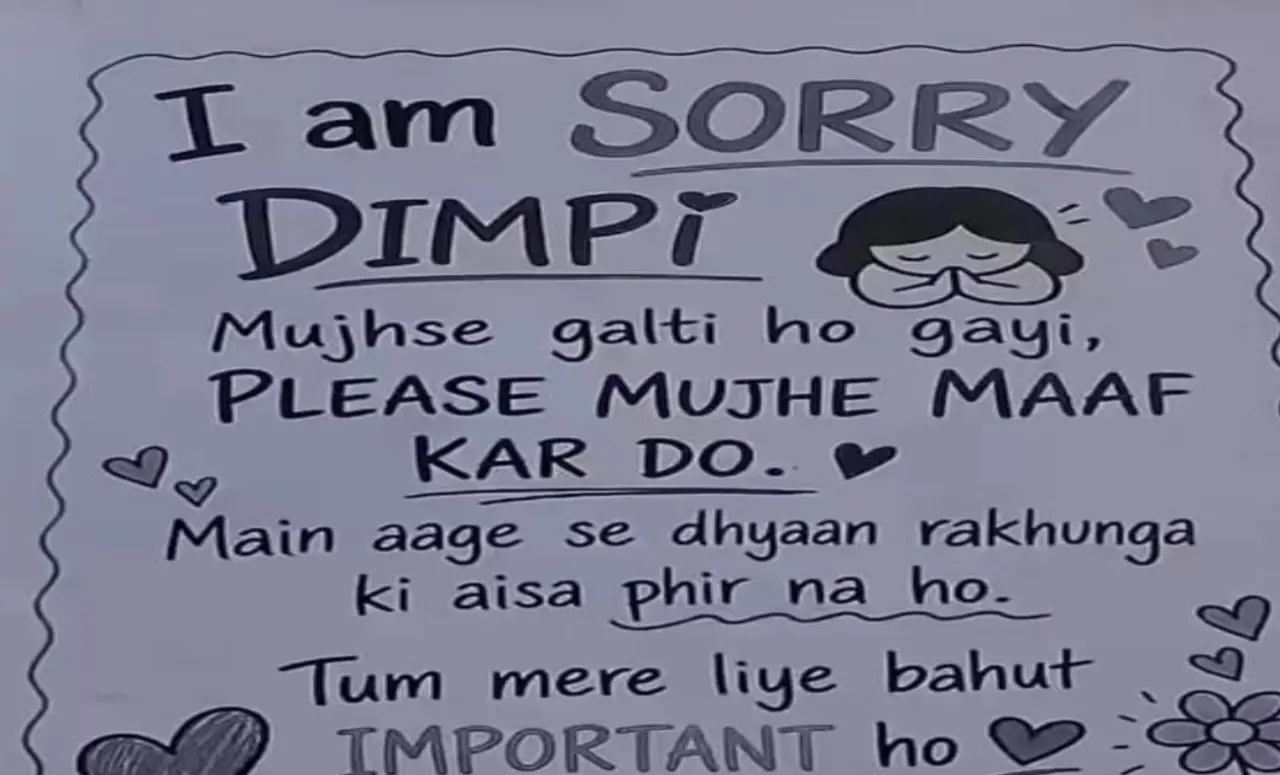 I am SORRY
DIMPi
Mujhse galti ho gayi,
PLEASE MUJHE MAAF
KAR DO.
Main aage se dhyaan rakhunga
ki aisa phir na ho.
Tum mere liye bahut
IMPORTANT ho